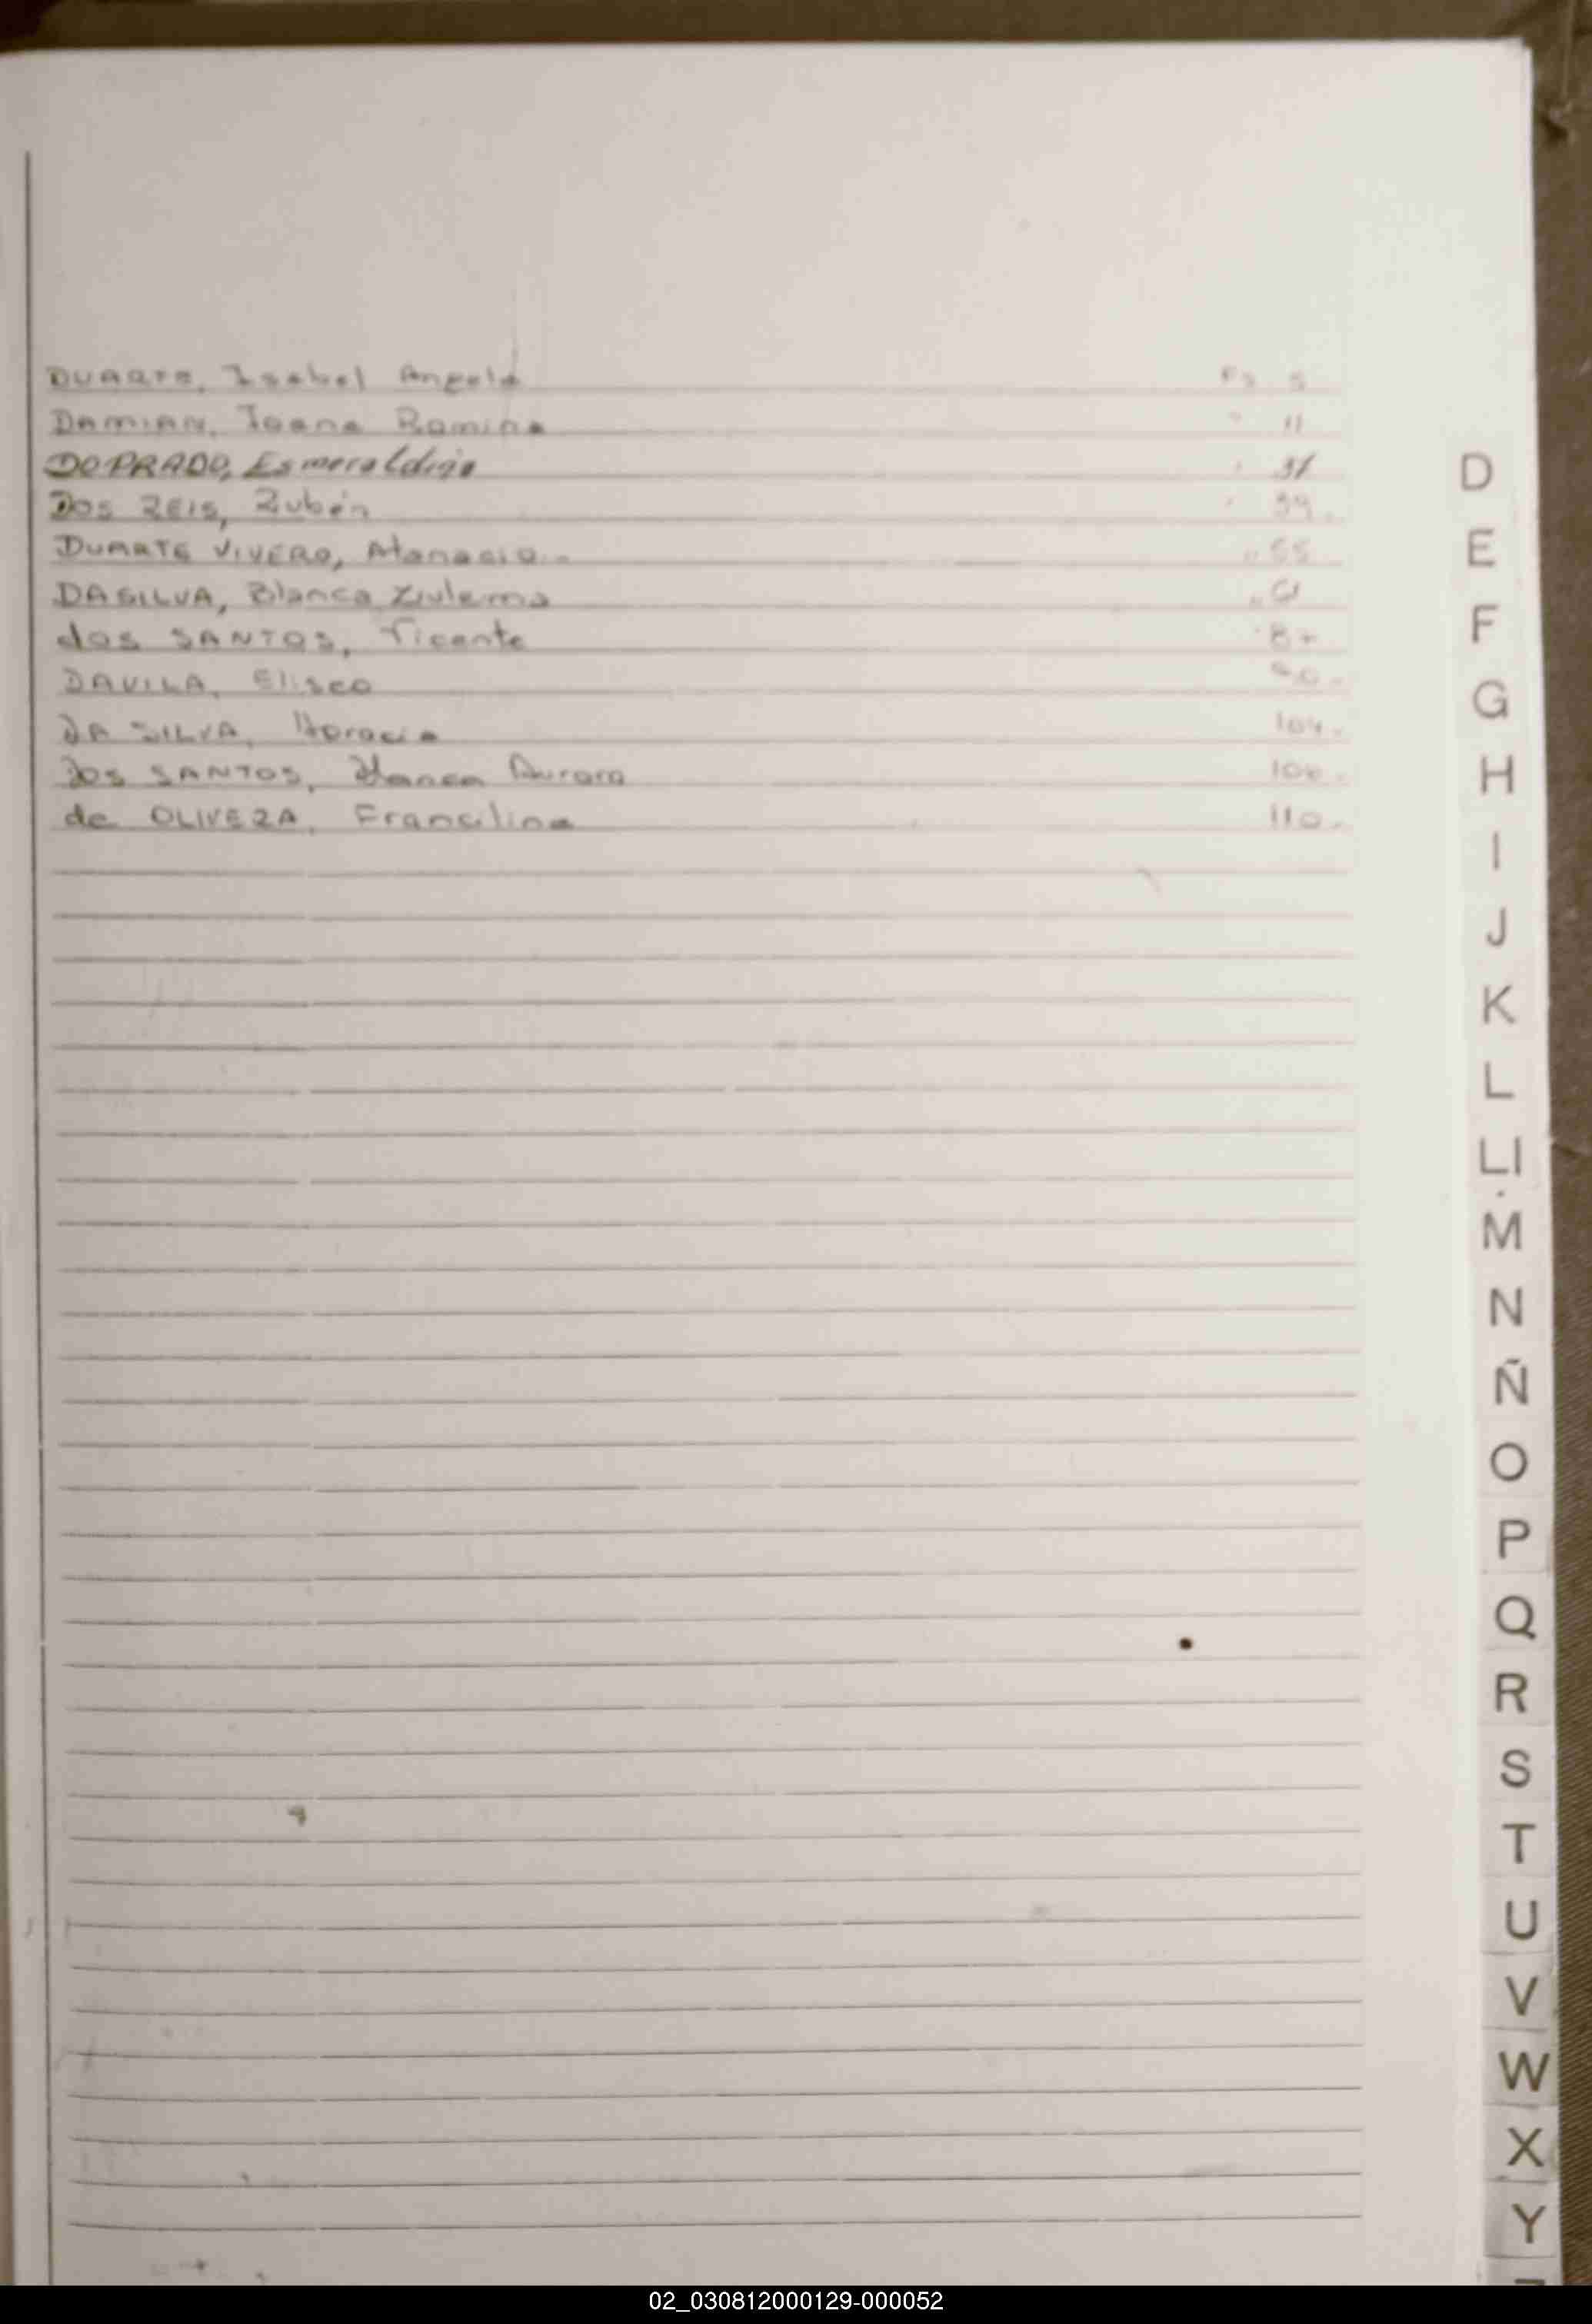 DUARTE, Isabel Angela Fs 5
DAMIAN, Joana Romina " 11
DOPRADO, Esmeraldina
DOS REIS, Rubén
DUARTE VIVERO, Atanacio " 55
DASILVA, Blanca Zulema " 61
dos SANTOS, Vicente 87
DAVILA, Eliseo 90.
DA SILVA, Horacio 104.
Dos SANTOS, Blanca Aurora
de OLIVERA, Francilina 110.
D
E
F
G
H
I
J
K
L
Ll
M
N
Ñ
O
P
Q
R
S
T
U
V
W
X
Y
02_030812000129-000052